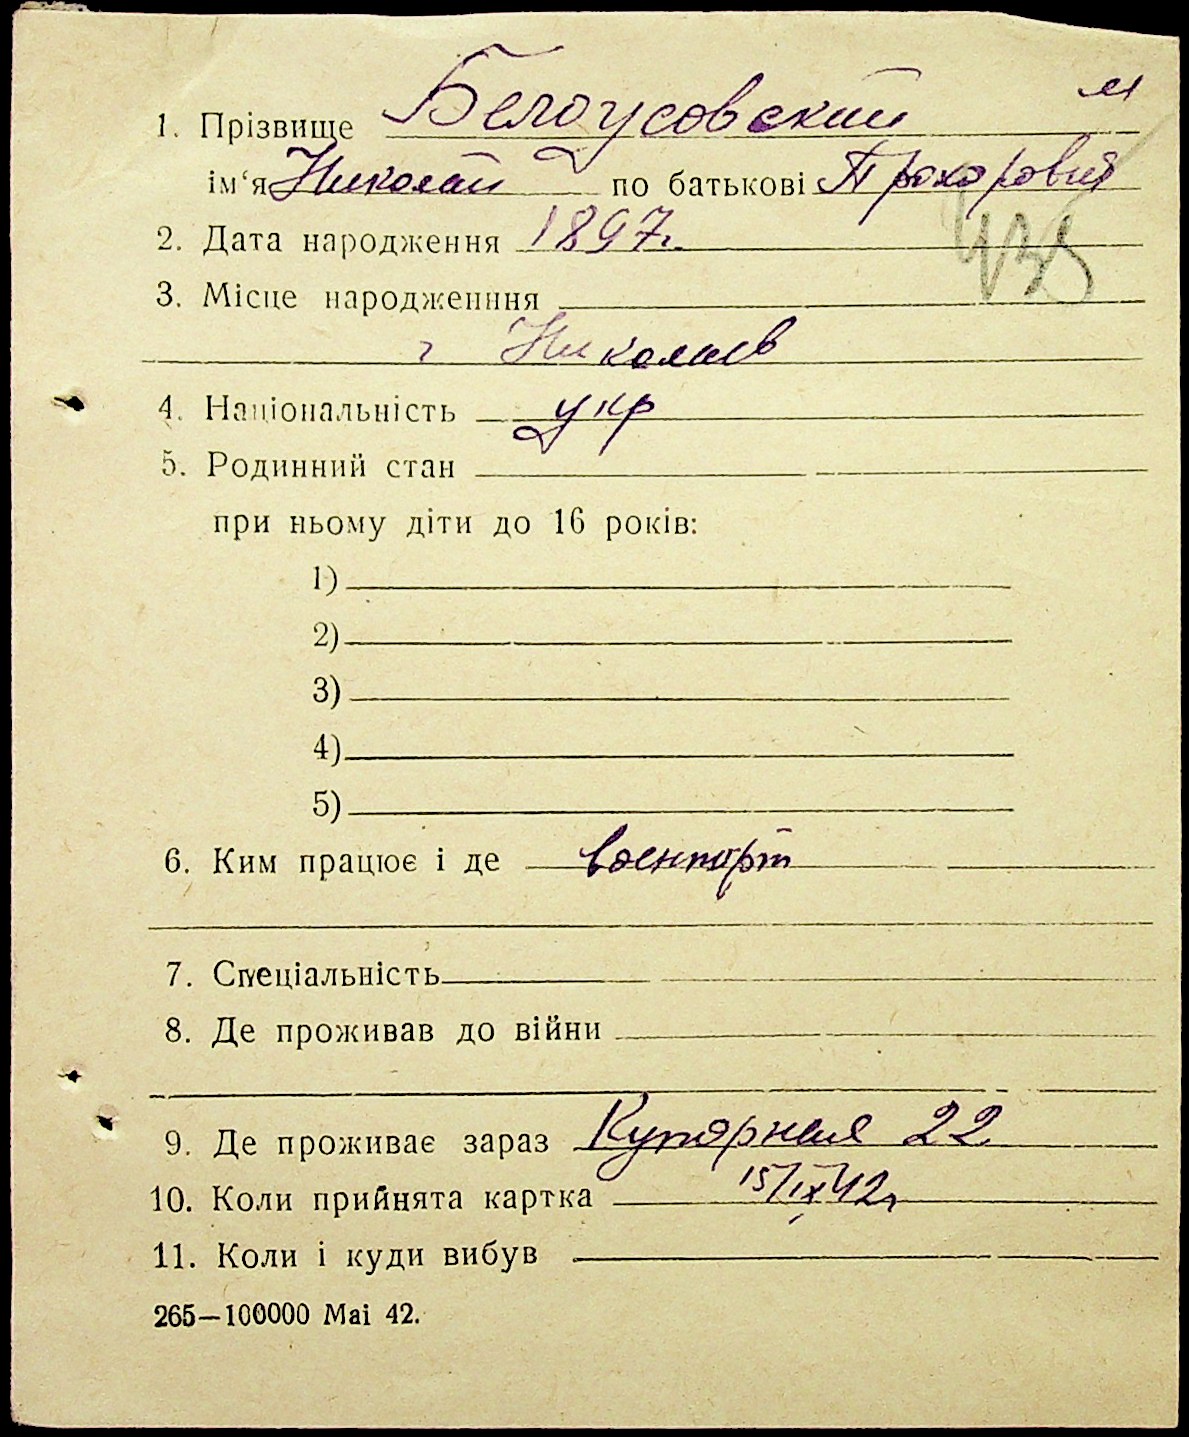 м
1. Прізвище Белоусовский
ім‘я Николай по батькові Прохорович
2. Дата народження 1897г.
3. Місце народженння
г Николаев
4. Національність укр
5. Родинний стан
при ньому діти до 16 років:
1)
2)
3)
4)
5)
6. Ким працює і де военпорт
7. Спеціальність
8. Де проживав до війни
9. Де проживає зараз Купорная 22
10. Коли прийнята картка 15/IX 42г
11. Коли і куди вибув
265—100000 Mai 42.